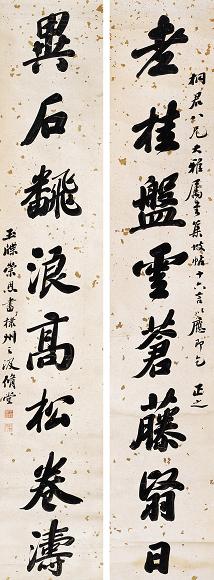 桐君八兄大雅屬書集坡帖十六言以應即乞 正之
老桂盤雲蒼藤翳日
異石飜浪高松卷濤
玉牒崇恩書棣州之汲脩堂